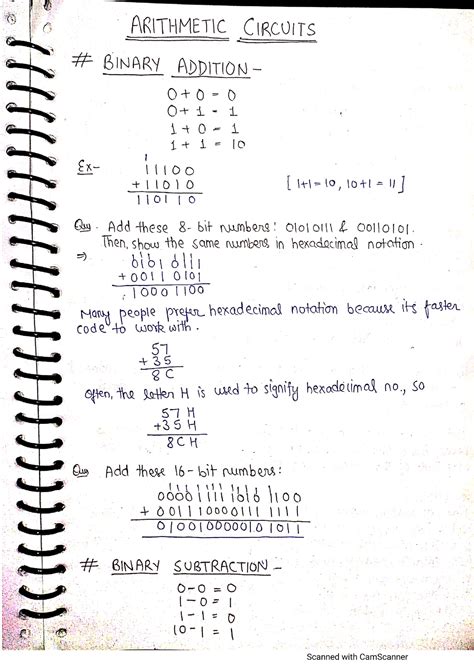 ARITHMETIC CIRCUITS
# BINARY ADDITION -
0+0 = 0
0+1 = 1
1+0 = 1
1+1 = 10
Ex-
1
11100
+11010
110110
[1+1=10, 10+1=11]
Ques. Add these 8-bit numbers: 01010111 & 00110101.
Then, show the same numbers in hexadecimal notation.
⇒
01010111
+00110101
10001100
Many people prefer hexadecimal notation because its faster
code to work with.
57
+35
8C
Often, the letter H is used to signify hexadecimal no., so
57 H
+35 H
8C H
Ques Add these 16-bit numbers:
0000111110101100
+ 0011100001111111
0100100000101011
# BINARY SUBTRACTION -
0-0 = 0
1-0 = 1
1-1 = 0
10-1 = 1
Scanned with CamScanner